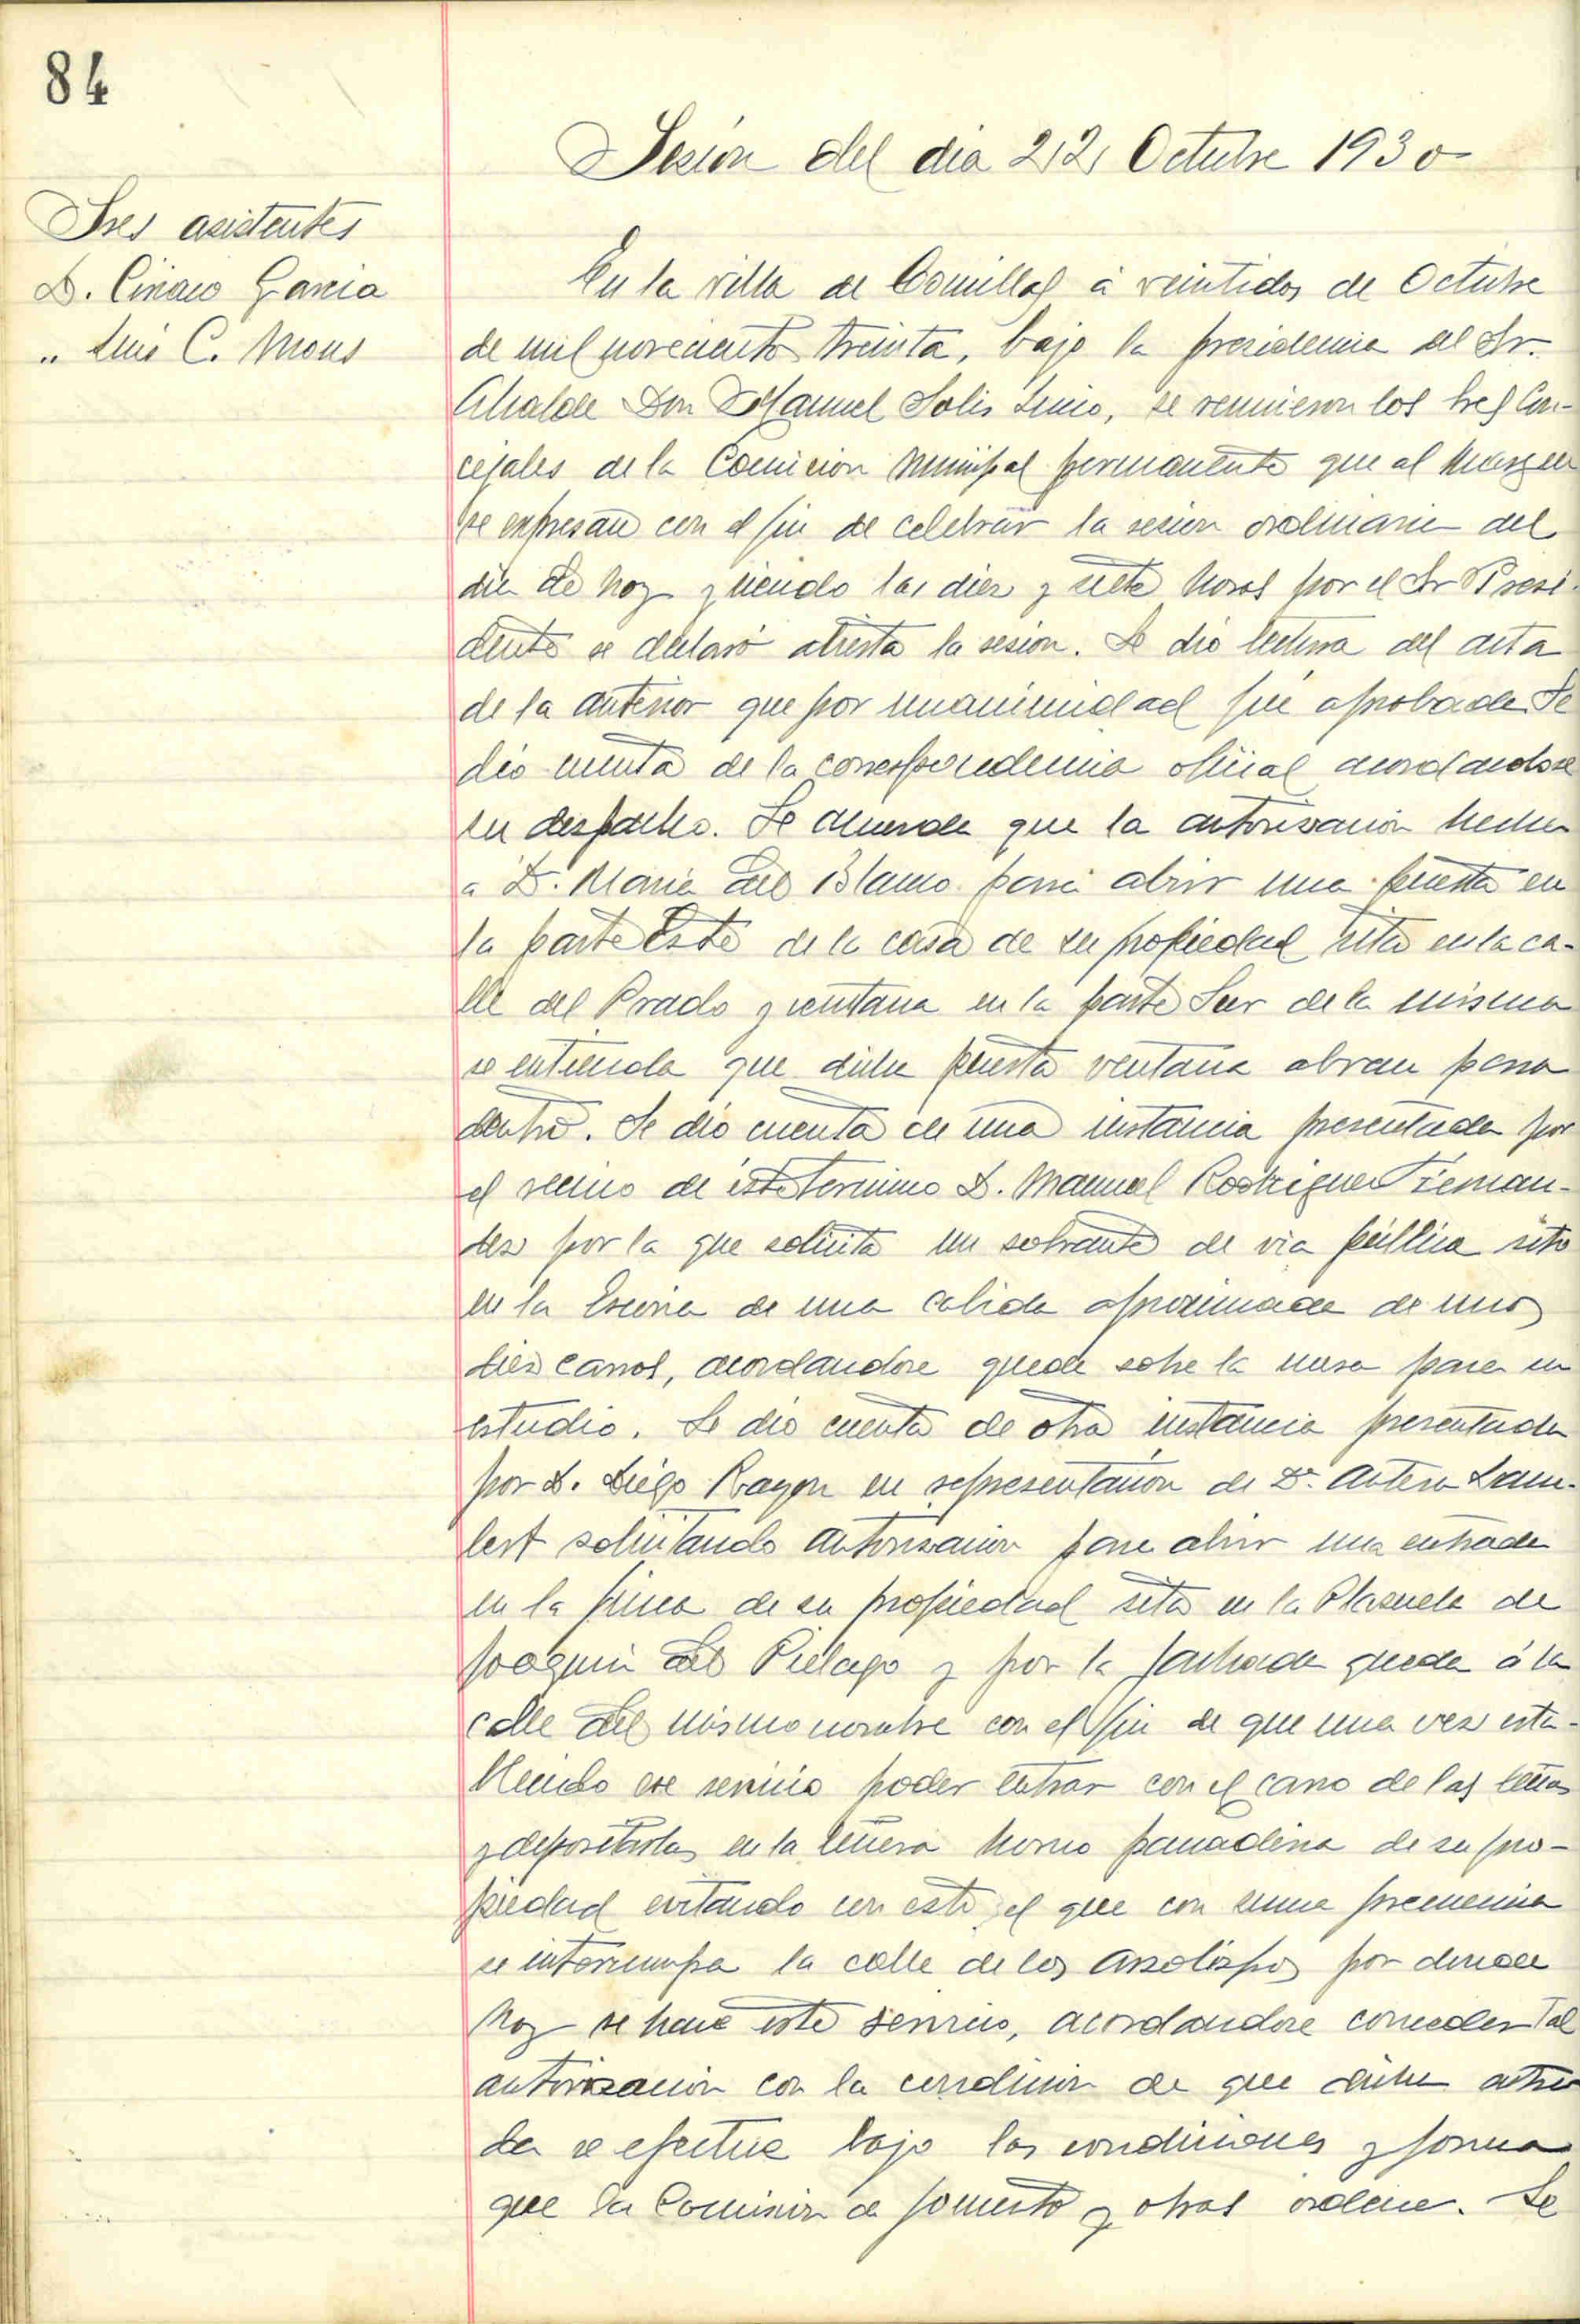 84
Sesión del dia 22 Octubre 1930
Sres asistentes
D. Ciriaco Garcia
" Luis C. Mons
En la villa de Comillas á veintidos de Octubre
de mil novecientos treinta, bajo la presidencia del Sr.
Alcalde Don Manuel Solis, se reunieron los Sres Con-
cejales de la Comision Municipal permanente que al margen
se expresan con el fin de celebrar la sesion ordinaria del
dia de hoy y siendo las diez y siete horas por el Sr Presi-
dente se declaró abierta la sesion. Se dió lectura del acta
de la anterior que por unanimidad fué aprobada. Se
dió cuenta de la correspondencia oficial acordandose
su despacho. Se acuerda que la autorización hecha
a Dª. Maria del Blanco para abrir una puerta en
la parte Este de la casa de su propiedad sita en la ca-
lle del Prado y ventana en la parte Sur de la misma
se entienda que dicha puerta ventana abran para
dentro. Se dió cuenta de una instancia presentada por
el vecino de este termino D. Manuel Rodriguez Fernan-
dez por la que solicita un sobrante de via pública sito
en la de una cabida aproximada de unos
diez carros, acordandose quede sobre la mesa para su
estudio. Se dió cuenta de otra instancia presentada
por D. Diego Rayon en representación de Dª. Lam-
bert solicitando autorización para abrir una entrada
en la finca de su propiedad sita en la Plazuela de
Joaquin del Piélago y por la fachada queda á la
calle del mismo nombre con el fin de que una vez esta-
blecido ese servicio poder entrar con el carro de las leñas
y depositarlas en la leñera horno panaderia de su pro-
piedad evitando con esto el que con suma frecuencia
se interrumpa la calle de los Arzobispos por donde
hoy se hace este servicio, acordandose conceder tal
autorización con la condicion de que dicha
da se efectue bajo las condiciones y forma
que la Comisión de fomento y obras ordene. Se